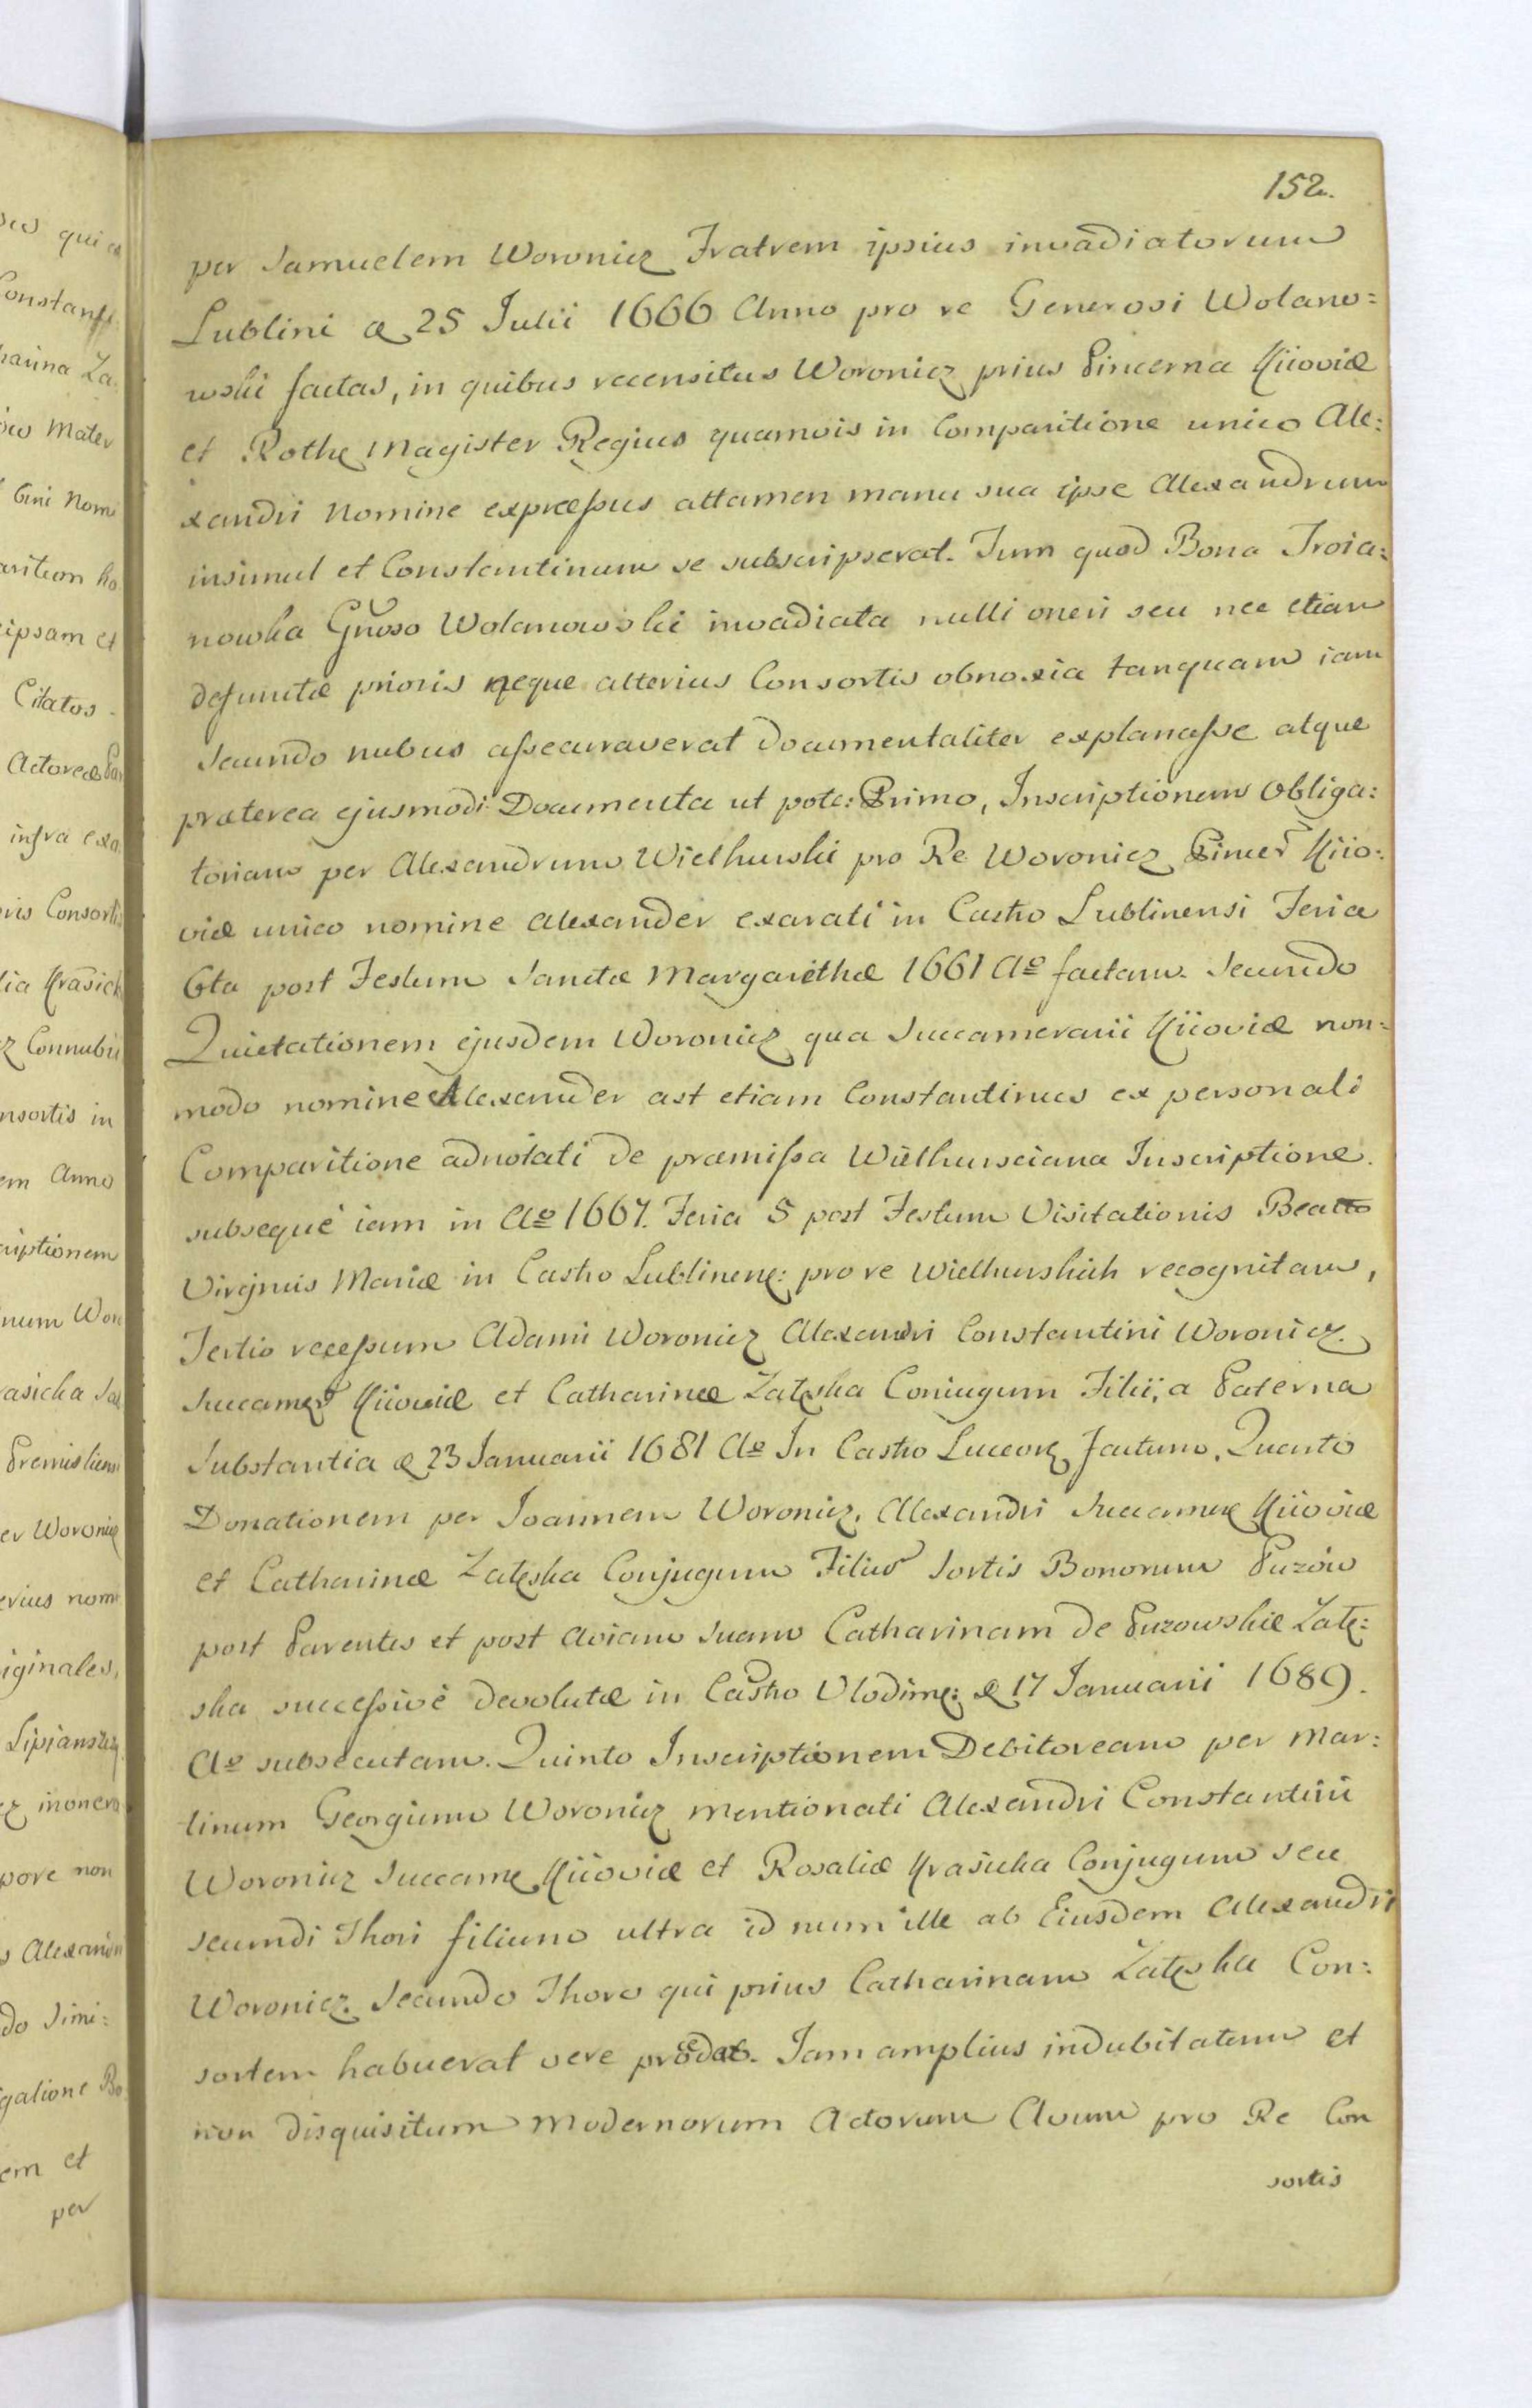 152.
per Samuelem Woronicz Fratrem ipsius invadiatorum
Lublini d 25 Julii 1666 Anno pro re Generosi Wolano=
wski factas, in quibus recensitus Woronicz prius Pincerna Kiioviæ
et Rothę Magister Regius quamvis in Comparitione unico Ale:
xandri Nomine expræssus attamen manu sua ipse Alexandrum
insimul et Constantinum se subscripserat. Tum quod Bona Troia:
nowka Gnoso Wolanowski invadiata nulli oneri seu nec etiam
defunctæ prioris neque alterius Consortis obnoxia tanquam iam
Secundo nubus assecuraverat documentaliter explanasse atque
præterea ejusmodi Documenta ut pote: Primo, Inscriptionem Obliga:
toriam per Alexandrum Wielhurski pro Re Woronicz Pincer Kiio:
viæ unico nomine Alexander exarati in Castro Lublinensi Feria
6ta post Festum Sanctæ Margarethæ 1661 Ao factam. Secundo
Quietationem ejusdem Woronicz qua Succamerarii Kiioviæ non=
modo nomine Alexander ast etiam Constantinus ex personali
Comparitione adnotati de præmissa Wielhursciana Inscriptione.
subseque iam in Ao 1667. Feria 5 post Festum Visitationis Beatto
Virginis Mariæ in Castro Lublinenę: pro re Wielhurskich recognitam,
Tertio recessum Adami Woronicz Alexandri Constantini Woronicz.
Succamer Kiioviæ et Catharinæ Załęska Coniugum Filii, a Paterna
Substantia d 23 Januarii 1681 Ao In Castro Luceorę factum. Quarto
Donationem per Joannem Woronicz. Alexandri Succamerę Kiioviæ
et Catharinæ Załęska Conjugum Filium Sortis Bonorum Puzów
post Parentes et post Aviam suam Catharinam de Puzowskie Załę:
ska successivè devolutæ in Castro Vlodimę: d 17 Januarii 1689.
Ao subsecutam. Quinto Inscriptionem Debitoream per Mar:
tinum Georgium Woronicz mentionati Alexandri Constantini
Woronicz Succamę Kiioviæ et Rosaliæ Krasicka Conjugum seu
secundi Thori filium ultra id num ille ab Eiusdem Alexandri
Woronicz. Secundo Thoro qui prius Catharinam Załęska Con:
sortem habuerat vere prodeat. Jam amplius indubitatum et
non disquisitum Modernorum Actorum Avum pro Re Con
sortis